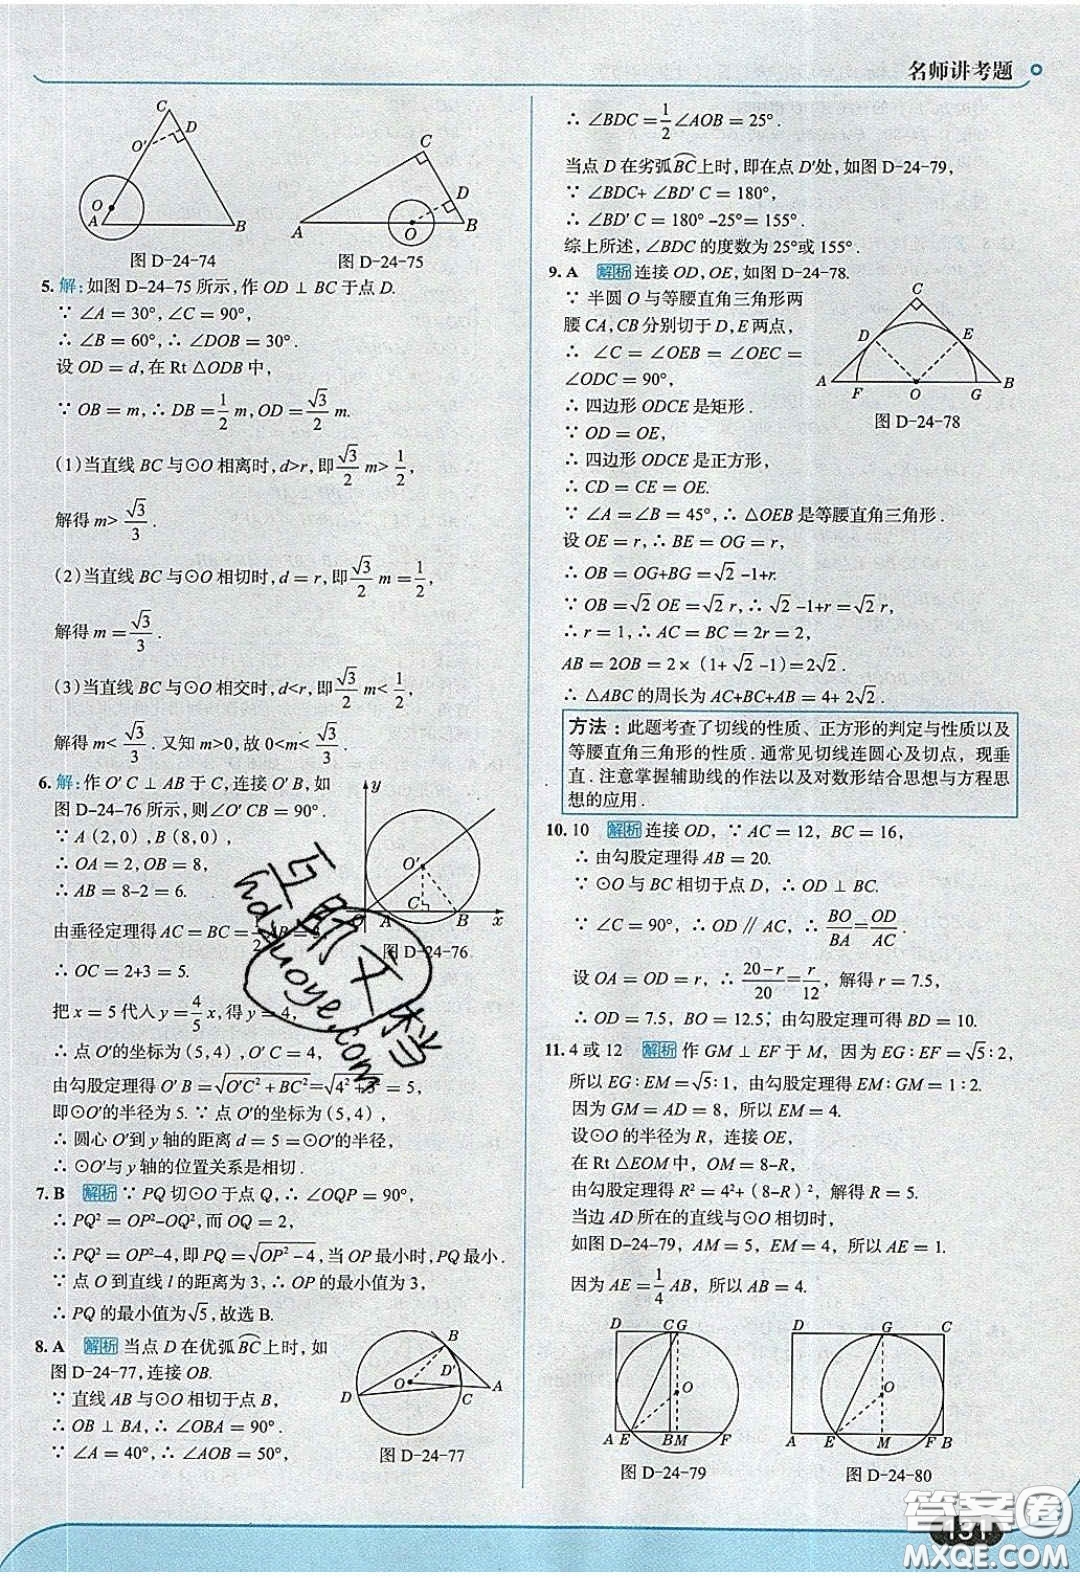 名师讲考题
C
D
O′
O
A
B
图 D-24-74
C
D
A
O
B
图 D-24-75
5. 解:如图 D-24-75 所示,作 OD ⊥ BC 于点 D.
∵ ∠A = 30°, ∠C = 90°,
∴ ∠B = 60°, ∴ ∠DOB = 30°.
设 OD = d,在 Rt △ODB 中,
∵ OB = m, ∴ DB = 1/2 m, OD = √3/2 m.
(1)当直线 BC 与⊙O 相离时, d>r,即 √3/2 m> 1/2,
解得 m> √3/3 .
(2)当直线 BC 与⊙O 相切时, d = r,即 √3/2 m = 1/2,
解得 m = √3/3 .
(3)当直线 BC 与⊙O 相交时, d<r,即 √3/2 m< 1/2,
解得 m< √3/3 . 又知 m>0,故 0<m< √3/3 .
6. 解:作 O′ C ⊥ AB 于 C,连接 O′ B,如
图 D-24-76 所示,则∠O′ CB = 90°.
∵ A(2,0),B(8,0),
∴ OA = 2, OB = 8,
∴ AB = 8-2 = 6.
由垂径定理得 AC = BC = 1/2 AB = 3,
∴ OC = 2+3 = 5.
把 x = 5 代入 y = 4/5 x,得 y = 4,
∴ 点 O′的坐标为(5,4),O′ C = 4,
由勾股定理得 O′ B = √(O′C² + BC²) = √(4² +3²) = 5,
即⊙O′的半径为 5. ∵ 点 O′的坐标为(5,4),
∴ 圆心 O′到 y 轴的距离 d = 5 =⊙O′的半径,
∴ ⊙O′与 y 轴的位置关系是相切.
y
O′
O
A
C
B
x
图 D-24-76
7. B 解析 ∵ PQ 切⊙O 于点 Q, ∴ ∠OQP = 90°,
∴ PQ² = OP²-OQ²,而 OQ = 2,
∴ PQ² = OP²-4,即 PQ = √(OP² -4),当 OP 最小时, PQ 最小.
∵ 点 O 到直线 l 的距离为 3, ∴ OP 的最小值为 3,
∴ PQ 的最小值为√5,故选 B.
8. A 解析 当点 D 在优弧BC上时,如
图 D-24-77,连接 OB.
∵ 直线 AB 与⊙O 相切于点 B,
∴ OB ⊥ BA, ∴ ∠OBA = 90°,
∵ ∠A = 40°, ∴ ∠AOB = 50°,
B
O
D′
D
C
A
图 D-24-77
∴ ∠BDC = 1/2 ∠AOB = 25°.
当点 D 在劣弧BC上时,即在点 D′处,如图 D-24-79,
∵ ∠BDC+ ∠BD′ C = 180°,
∴ ∠BD′ C = 180° -25°= 155°.
综上所述, ∠BDC 的度数为 25°或 155°.
9. A 解析 连接 OD, OE,如图 D-24-78.
∵ 半圆 O 与等腰直角三角形两
腰 CA, CB 分别切于 D, E 两点,
∴ ∠C = ∠OEB = ∠OEC =
∠ODC = 90°,
∴ 四边形 ODCE 是矩形.
∵ OD = OE,
∴ 四边形 ODCE 是正方形,
∴ CD = CE = OE.
∵ ∠A = ∠B = 45°, ∴ △OEB 是等腰直角三角形.
设 OE = r, ∴ BE = OG = r,
∴ OB = OG+BG = √2 -1+r.
∵ OB = √2 OE = √2 r, ∴ √2 -1+r = √2 r,
∴ r = 1, ∴ AC = BC = 2r = 2,
AB = 2OB = 2× (1+ √2 -1) = 2√2 .
∴ △ABC 的周长为 AC+BC+AB = 4+ 2√2 .
C
D
E
A
F
O
G
B
图 D-24-78
方法: 此题考查了切线的性质、正方形的判定与性质以及
等腰直角三角形的性质.通常见切线连圆心及切点,现垂
直.注意掌握辅助线的作法以及对数形结合思想与方程思
想的应用.
10. 10 解析 连接 OD, ∵ AC = 12, BC = 16,
∴ 由勾股定理得 AB = 20.
∵ ⊙O 与 BC 相切于点 D, ∴ OD ⊥ BC.
∵ ∠C = 90°, ∴ OD ∥ AC, ∴ BO/BA = OD/AC.
设 OA = OD = r, ∴ (20-r)/20 = r/12,解得 r = 7.5,
∴ OD = 7.5, BO = 12.5; 由勾股定理可得 BD = 10.
11. 4 或 12 解析 作 GM ⊥ EF 于 M,因为 EG : EF = √5 : 2,
所以 EG : EM = √5 : 1,由勾股定理得 EM : GM = 1 : 2.
因为 GM = AD = 8,所以 EM = 4.
设⊙O 的半径为 R,连接 OE,
在 Rt △EOM 中, OM = 8-R,
由勾股定理得 R² = 4²+ (8-R)²,解得 R = 5.
当边 AD 所在的直线与⊙O 相切时,
如图 D-24-79, AM = 5, EM = 4,所以 AE = 1.
因为 AE = 1/4 AB,所以 AB = 4.
D
C G
O
A E
B M
F
图 D-24-79
D
G
C
O
A
E
M
F B
图 D-24-80
131
互联文档
hdzuoye.com
答案圈
MXQE.COM